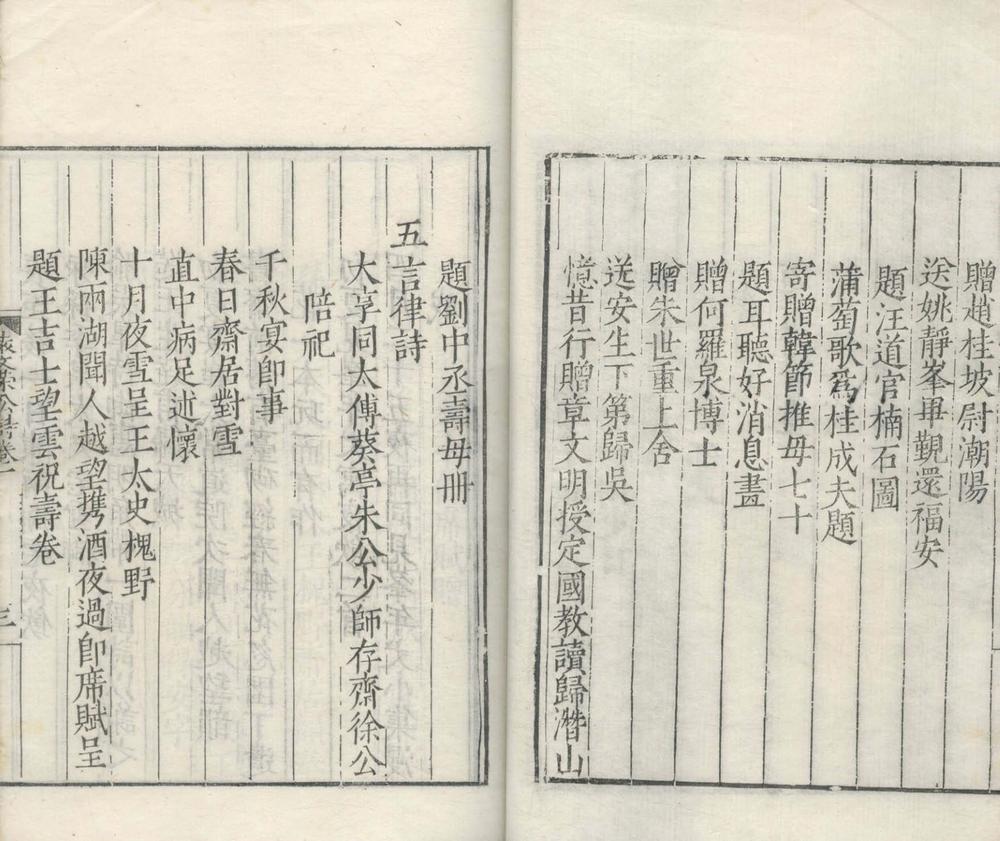 贈趙桂坡尉潮陽
送姚靜峯畢覲還福安
題汪道官楠石圖
蒲萄歌爲桂成夫題
寄贈韓節推母七十
題耳聽好消息畫
贈何羅泉博士
贈朱世重上舍
送安生下第歸吳
憶昔行贈章文明授定國教讀歸潛山
題劉中丞壽母冊
五言律詩
大享同太傅葵亭朱公少師存齋徐公
陪祀
千秋宴卽事
春日齋居對雪
直中病足述懷
十月夜雪呈王太史槐野
陳兩湖聞人越望攜酒夜過卽席賦呈
題王吉士望雲祝壽卷
三